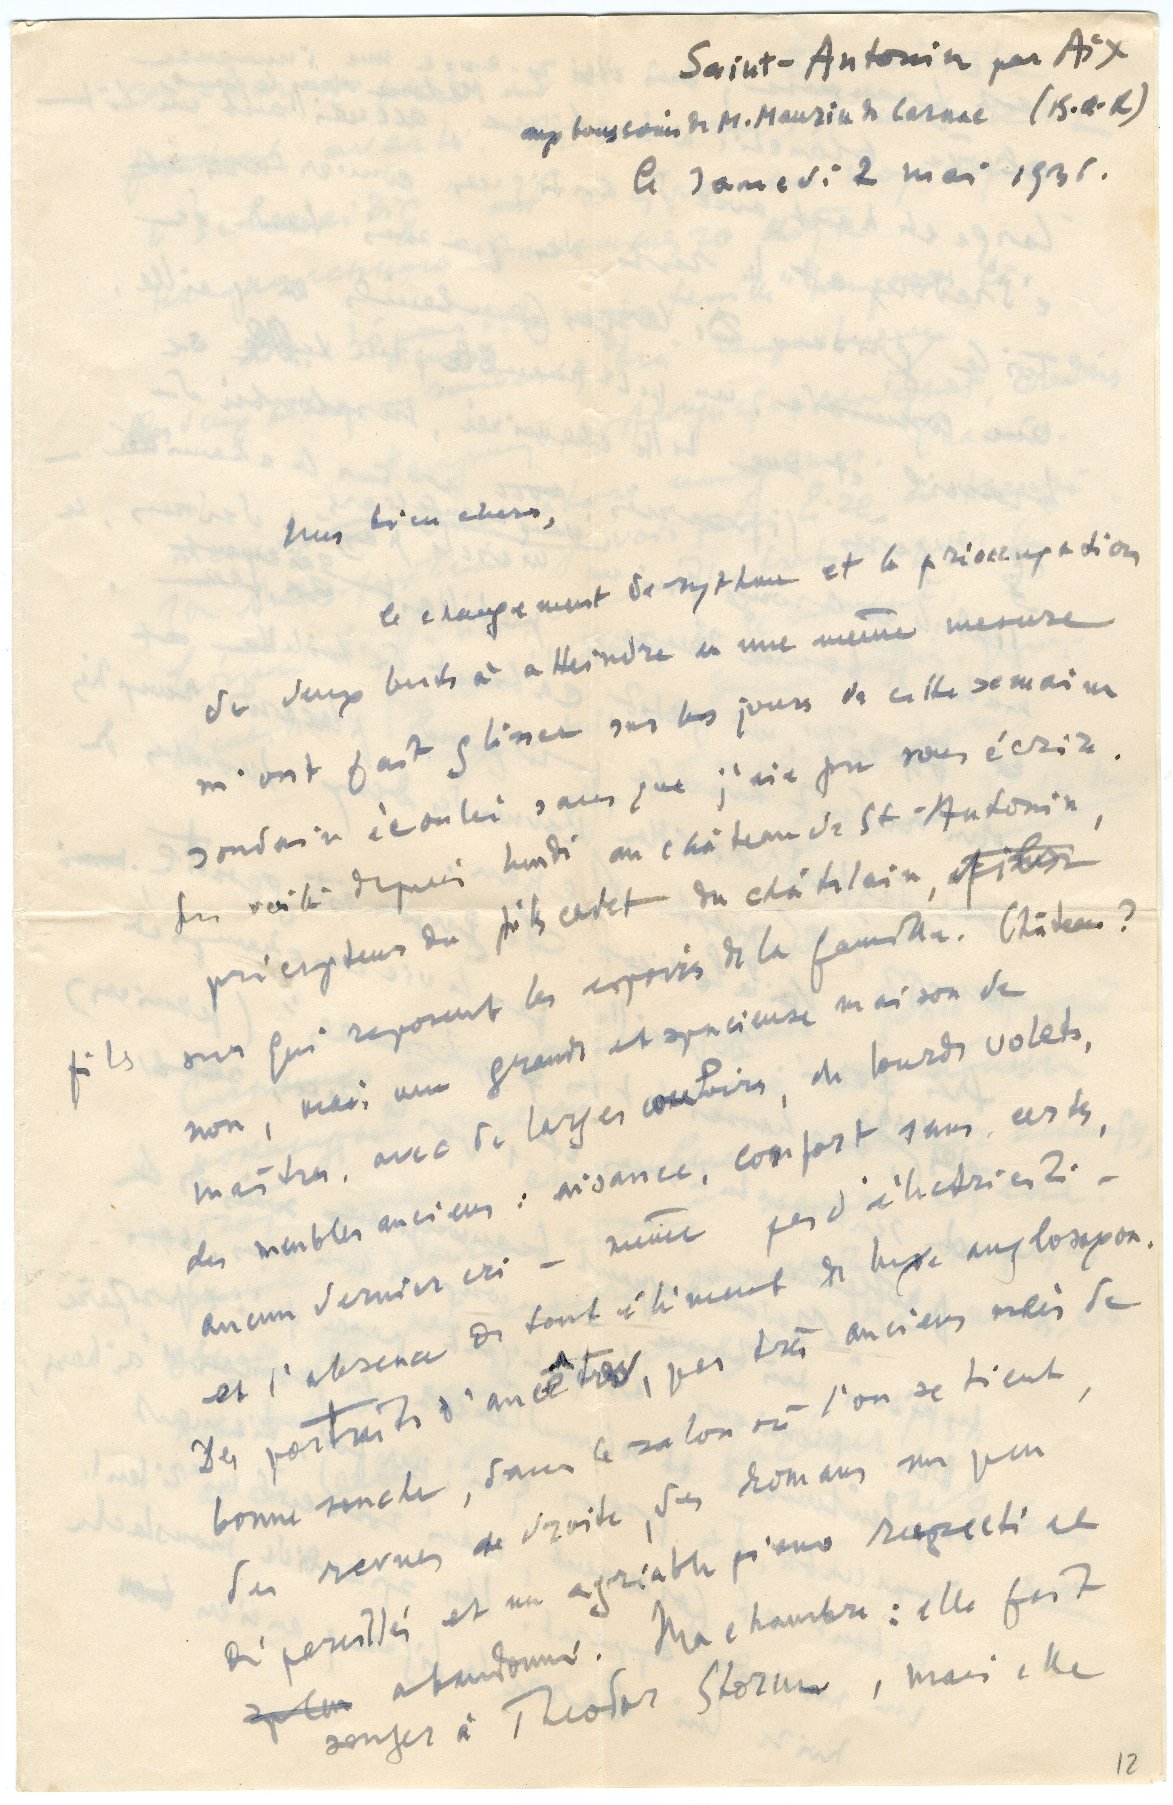 Saint-Antonin par Aix
aux bons soins de M. Maurin de Carnac (B.d.R)
le samedi 2 mai 1936.
Mes bien chers,
le changement de rythme et la préoccupation
de deux buts à atteindre en une même mesure
m'ont fait glisser sur les jours de cette semaine
soudain écoulée sans que j'aie pu vous écrire.
Me voilà depuis lundi au château de St-Antonin,
précepteur du fils cadet du châtelain,
fils sur qui reposent les espoirs de la famille. Château?
non, mais une grande et spacieuse maison de
maîtres, avec de larges couloirs, de lourds volets,
des meubles anciens : aisance, confort sans, certes,
aucun dernier cri – même pas d'électricité –
et l'absence de tout élément de luxe anglosaxon.
Des portraits d'ancêtres, pas très anciens mais de
bonne souche, dans le salon où l'on se tient,
des revues de droite, des romans un peu
dépareillés et un agréable piano respecté et
abandonné. Ma chambre : elle fait
songer à Theodor Storm, mais elle
12